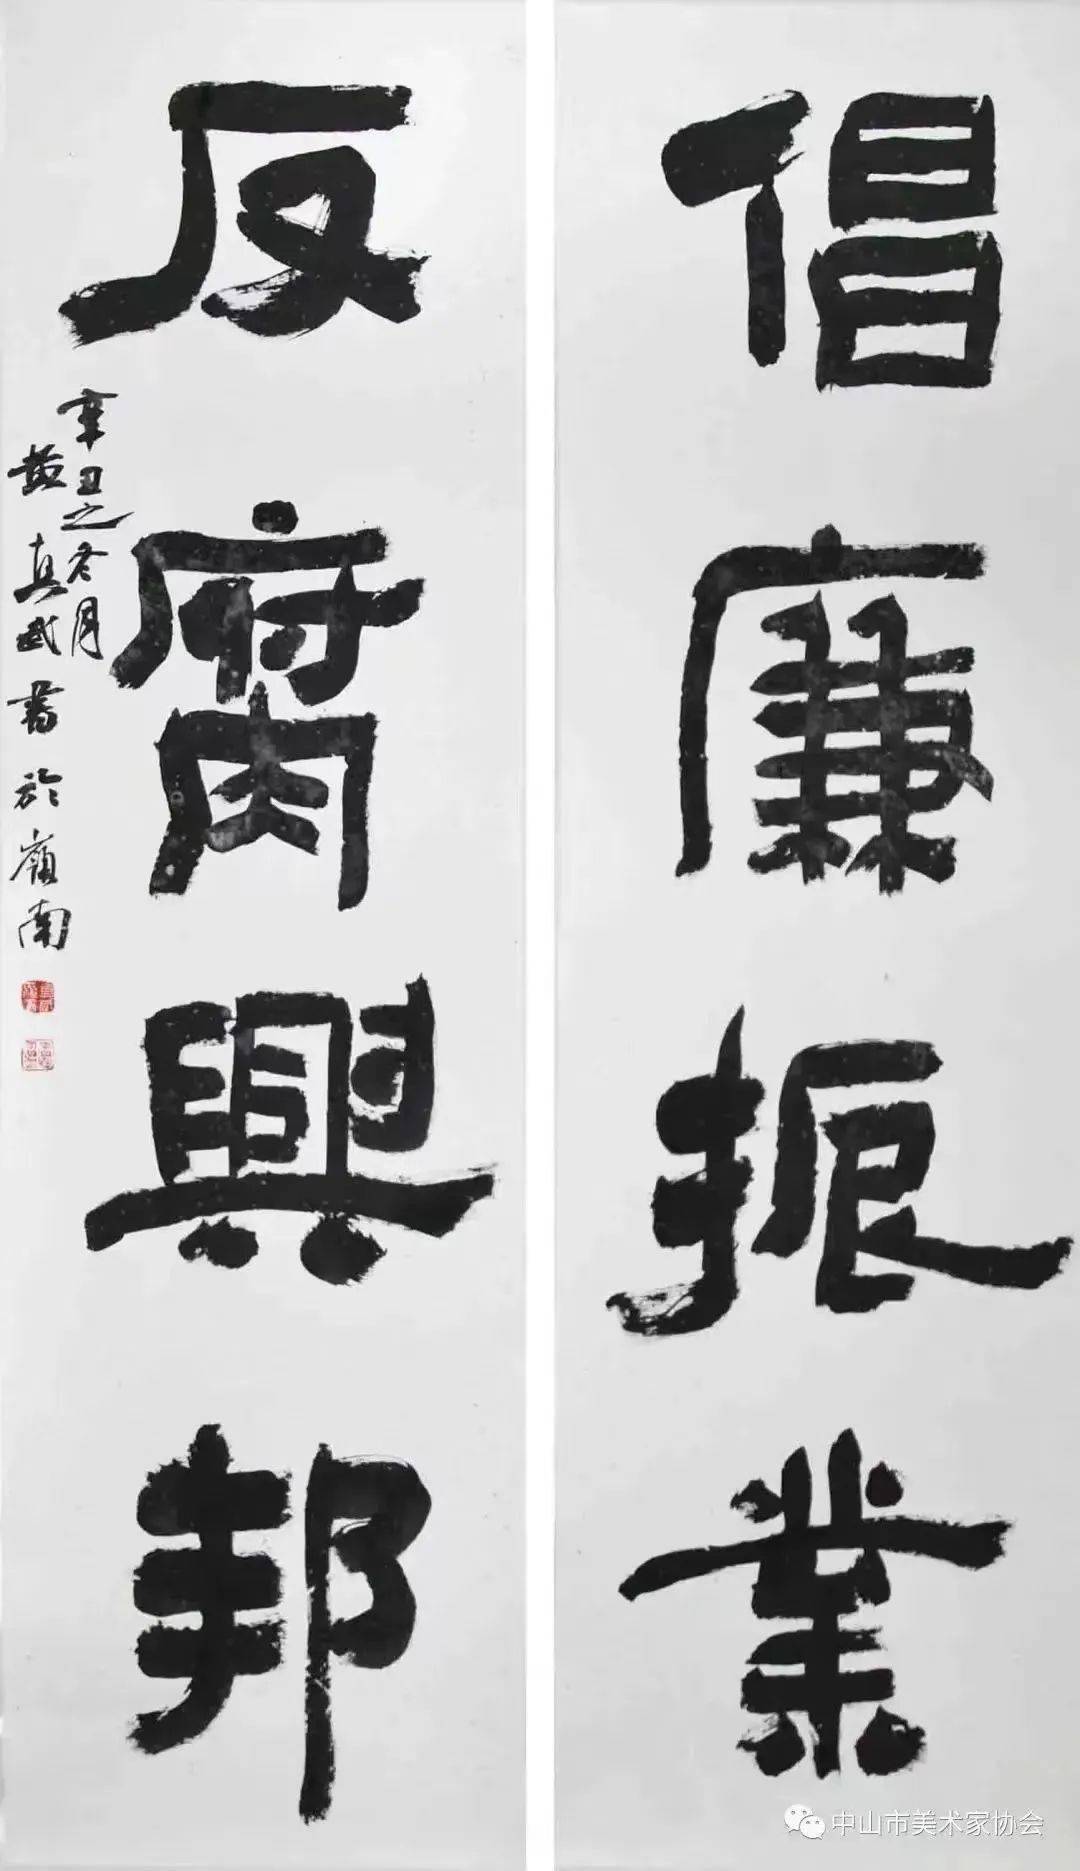 倡廉振業
反腐興邦
辛丑之冬月
黄真武書於嶺南
中山市美术家协会